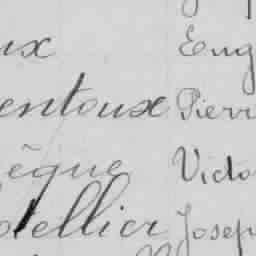 ux Eug
entoux Pierr
êque Victo
ellier Josep